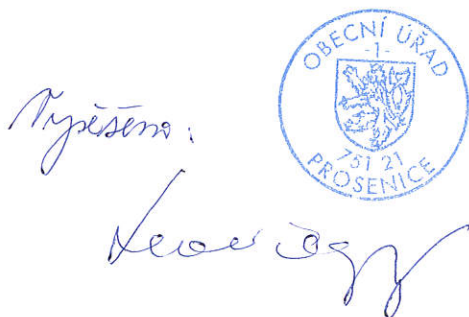 OBECNÍ ÚŘAD
-1-
751 21
PROSENICE
Vyvěšeno: